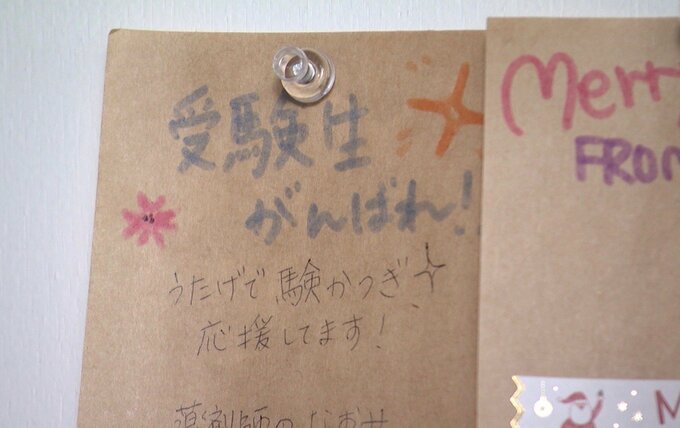 受験生
がんばれ!
うたげで験かつぎ
応援してます!
薬剤師のなおせ
Merry
FROM
M